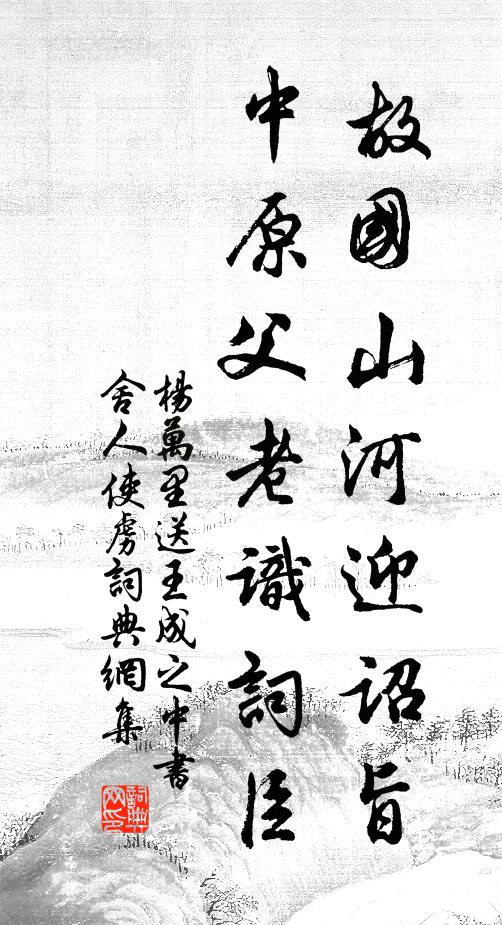 故國山河迎詔旨
中原父老識詞臣
楊萬里送王成之中書
舍人使虜詞典網集